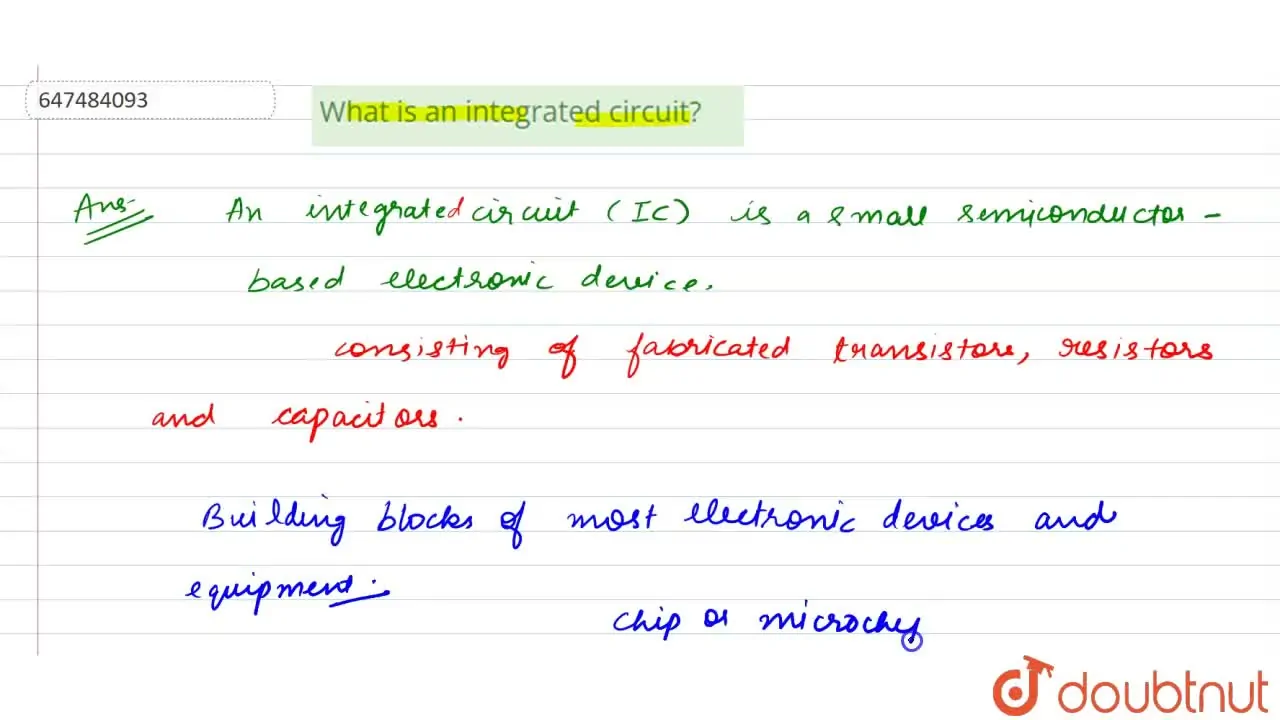 647484093
What is an integrated circuit?
Ans- An integrated circuit (IC) is a small semiconductor-
based electronic device.
consisting of fabricated transistors, resistors
and capacitors.
Building blocks of most electronic devices and
equipment.
chip or microchip
doubtnut